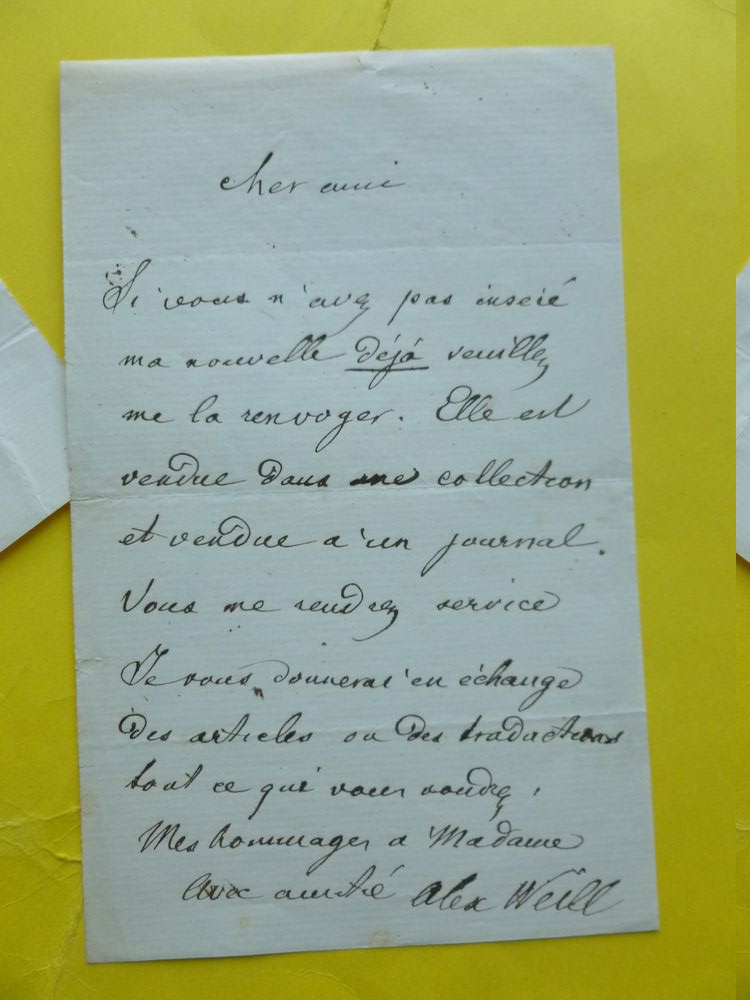 cher ami
Si vous n'avez pas inséré
ma nouvelle déjà veuillez
me la renvoyer. Elle est
vendue dans une collection
et vendue a un journal.
Vous me rendrez service
Je vous donnerai en échange
des articles ou des traductions
tout ce que vous voudrez.
Mes hommages a Madame
avec amitié Alex Weill